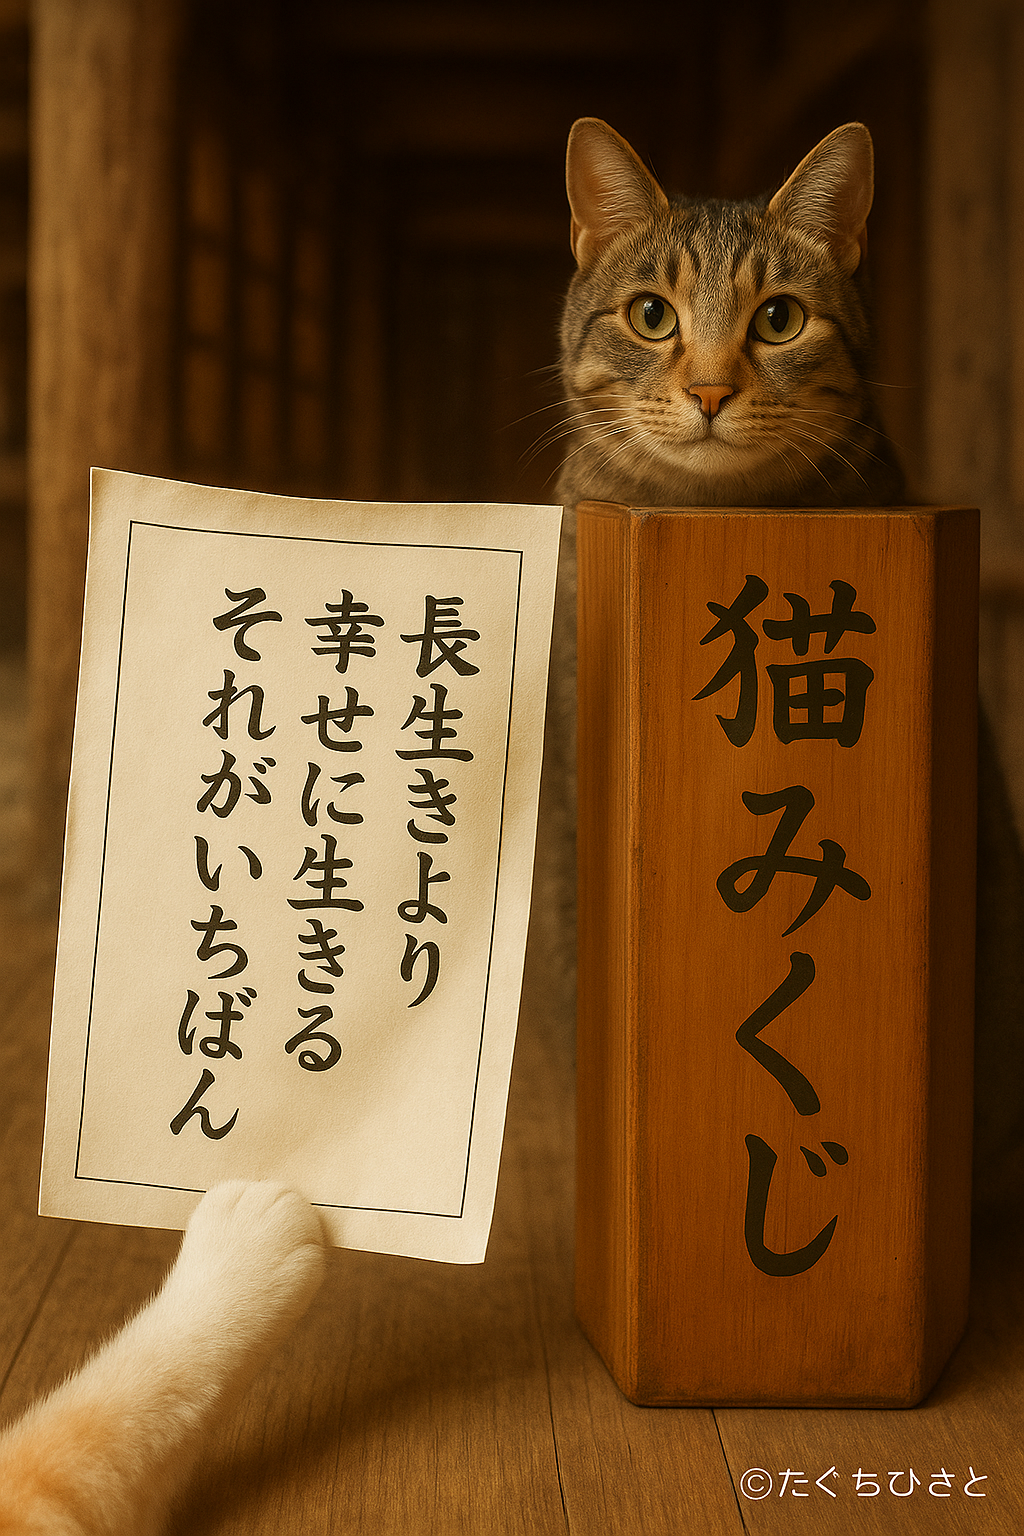 長生きより
幸せに生きる
それがいちばん
猫みくじ
©たぐちひさと